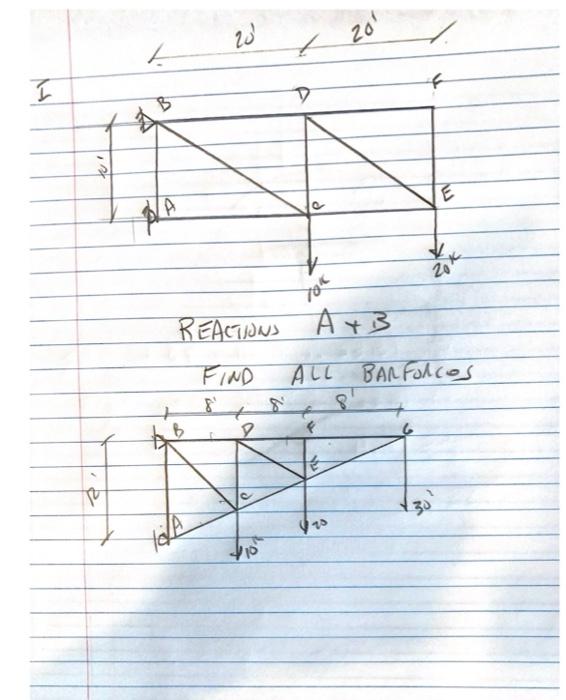 20' 20'
I
B D F
10'
A C E
10K 20K
REACTIONS A + B
FIND ALL BARFORCES
8' 8' 8'
B D F G
12'
E
C
A
30'
20
10K